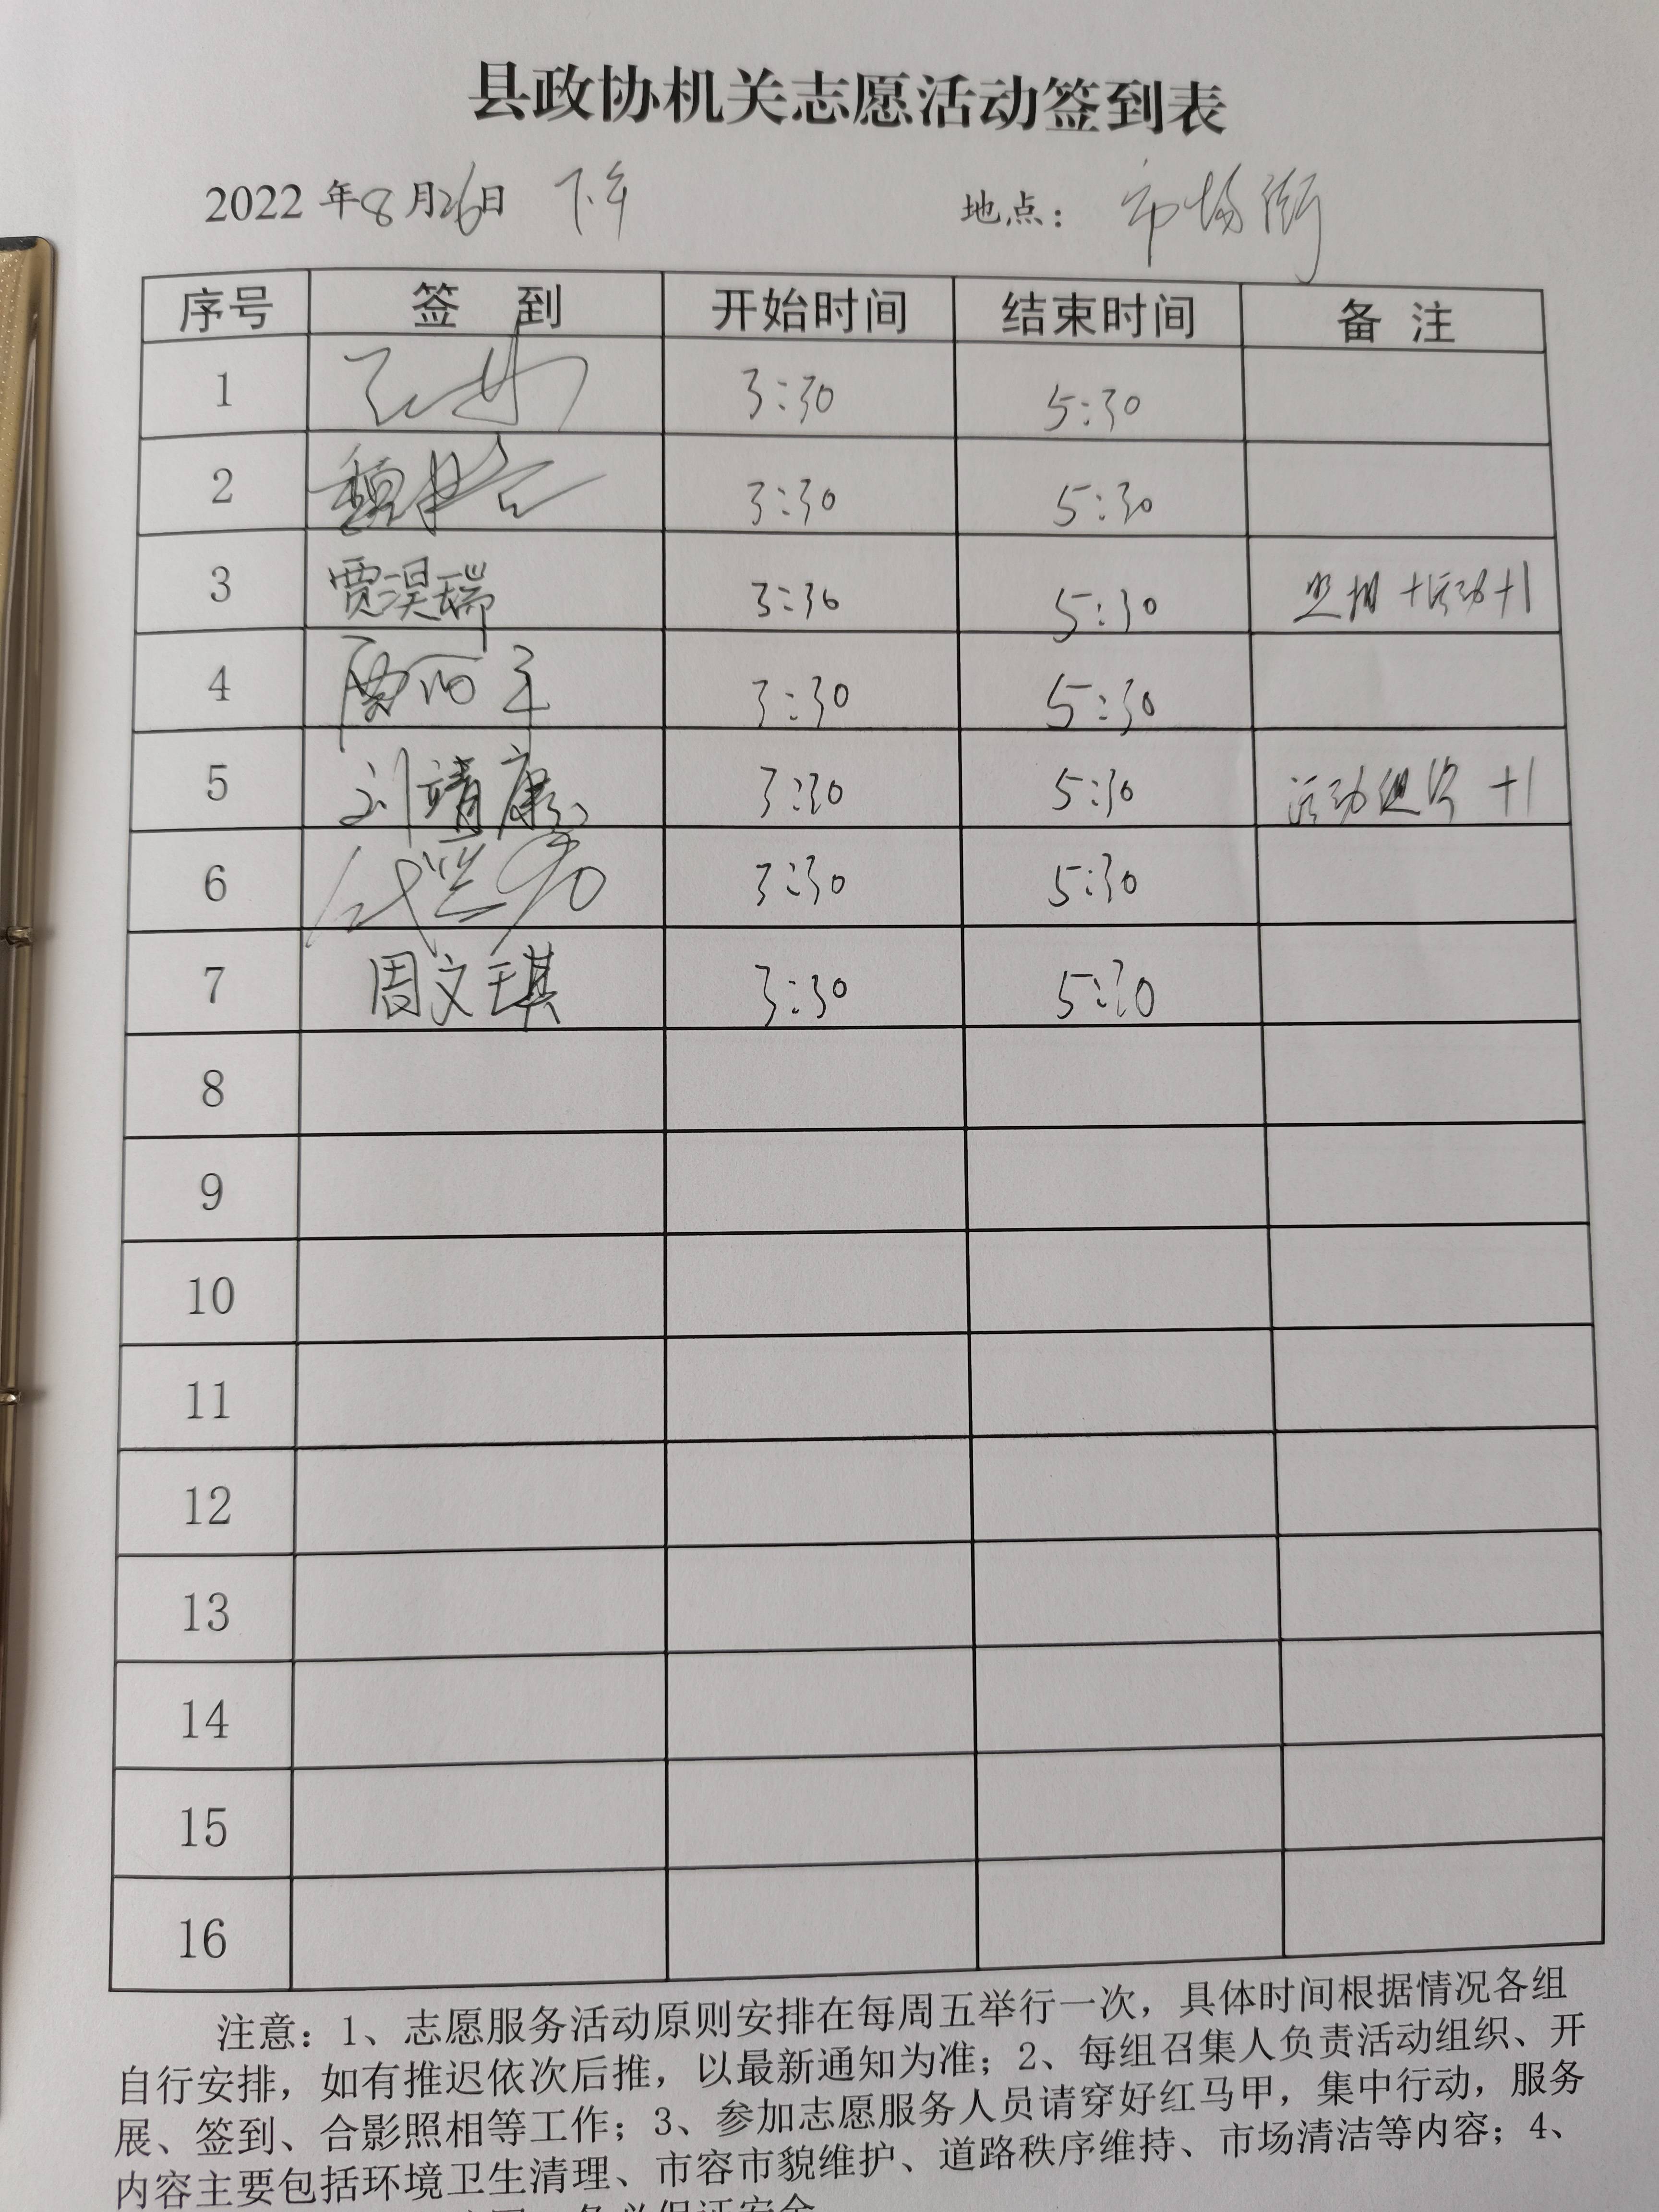 县政协机关志愿活动签到表
2022 年8月26日 下午 地点： 市场街
序号 签 到 开始时间 结束时间 备 注
1 3:30 5:30
2 魏 3:30 5:30
3 贾淏瑞 3:30 5:30 +活动+1
4 贾 3:30 5:30
5 刘靖康 3:30 5:30 活动组织 +1
6 3:30 5:30
7 周文琪 3:30 5:30
8
9
10
11
12
13
14
15
16
注意：1、志愿服务活动原则安排在每周五举行一次，具体时间根据情况各组
自行安排，如有推迟依次后推，以最新通知为准；2、每组召集人负责活动组织、开
展、签到、合影照相等工作；3、参加志愿服务人员请穿好红马甲，集中行动，服务
内容主要包括环境卫生清理、市容市貌维护、道路秩序维持、市场清洁等内容；4、
务必保证安全